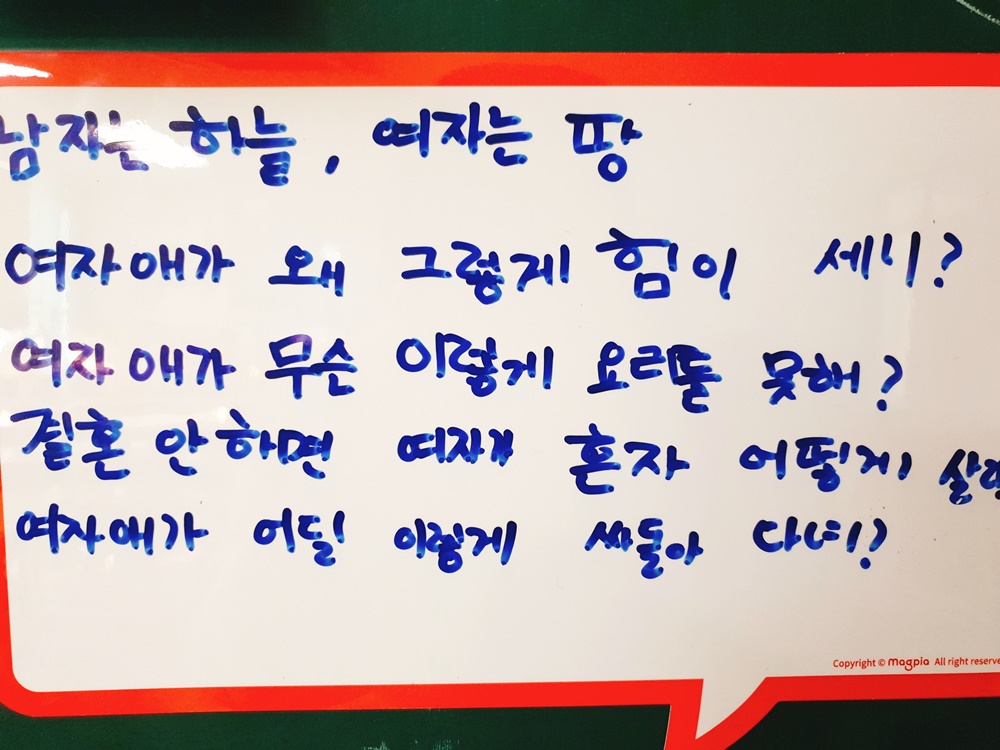 남자는 하늘, 여자는 땅
여자애가 왜 그렇게 힘이 세니?
여자애가 무슨 이렇게 요리를 못해?
결혼 안하면 여자가 혼자 어떻게
여자애가 어딜 이렇게 싸돌아 다녀?
Copyright © magpia All right reserve